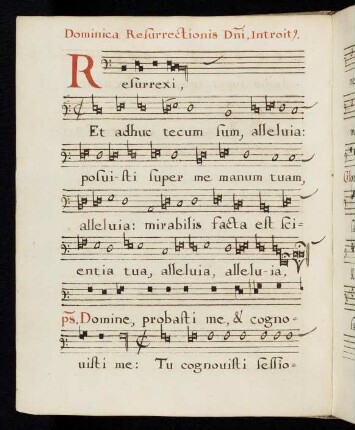 Dominica Resurrectionis Dñi, Introitꝰ.
Resurrexi,
Et adhuc tecum sum, alleluia:
posui-sti super me manum tuam,
alleluia: mirabilis facta est sci-
entia tua, alleluia, allelu-ia,
ps. Domine, probasti me, & cogno-
uisti me: Tu cognouisti sessio-